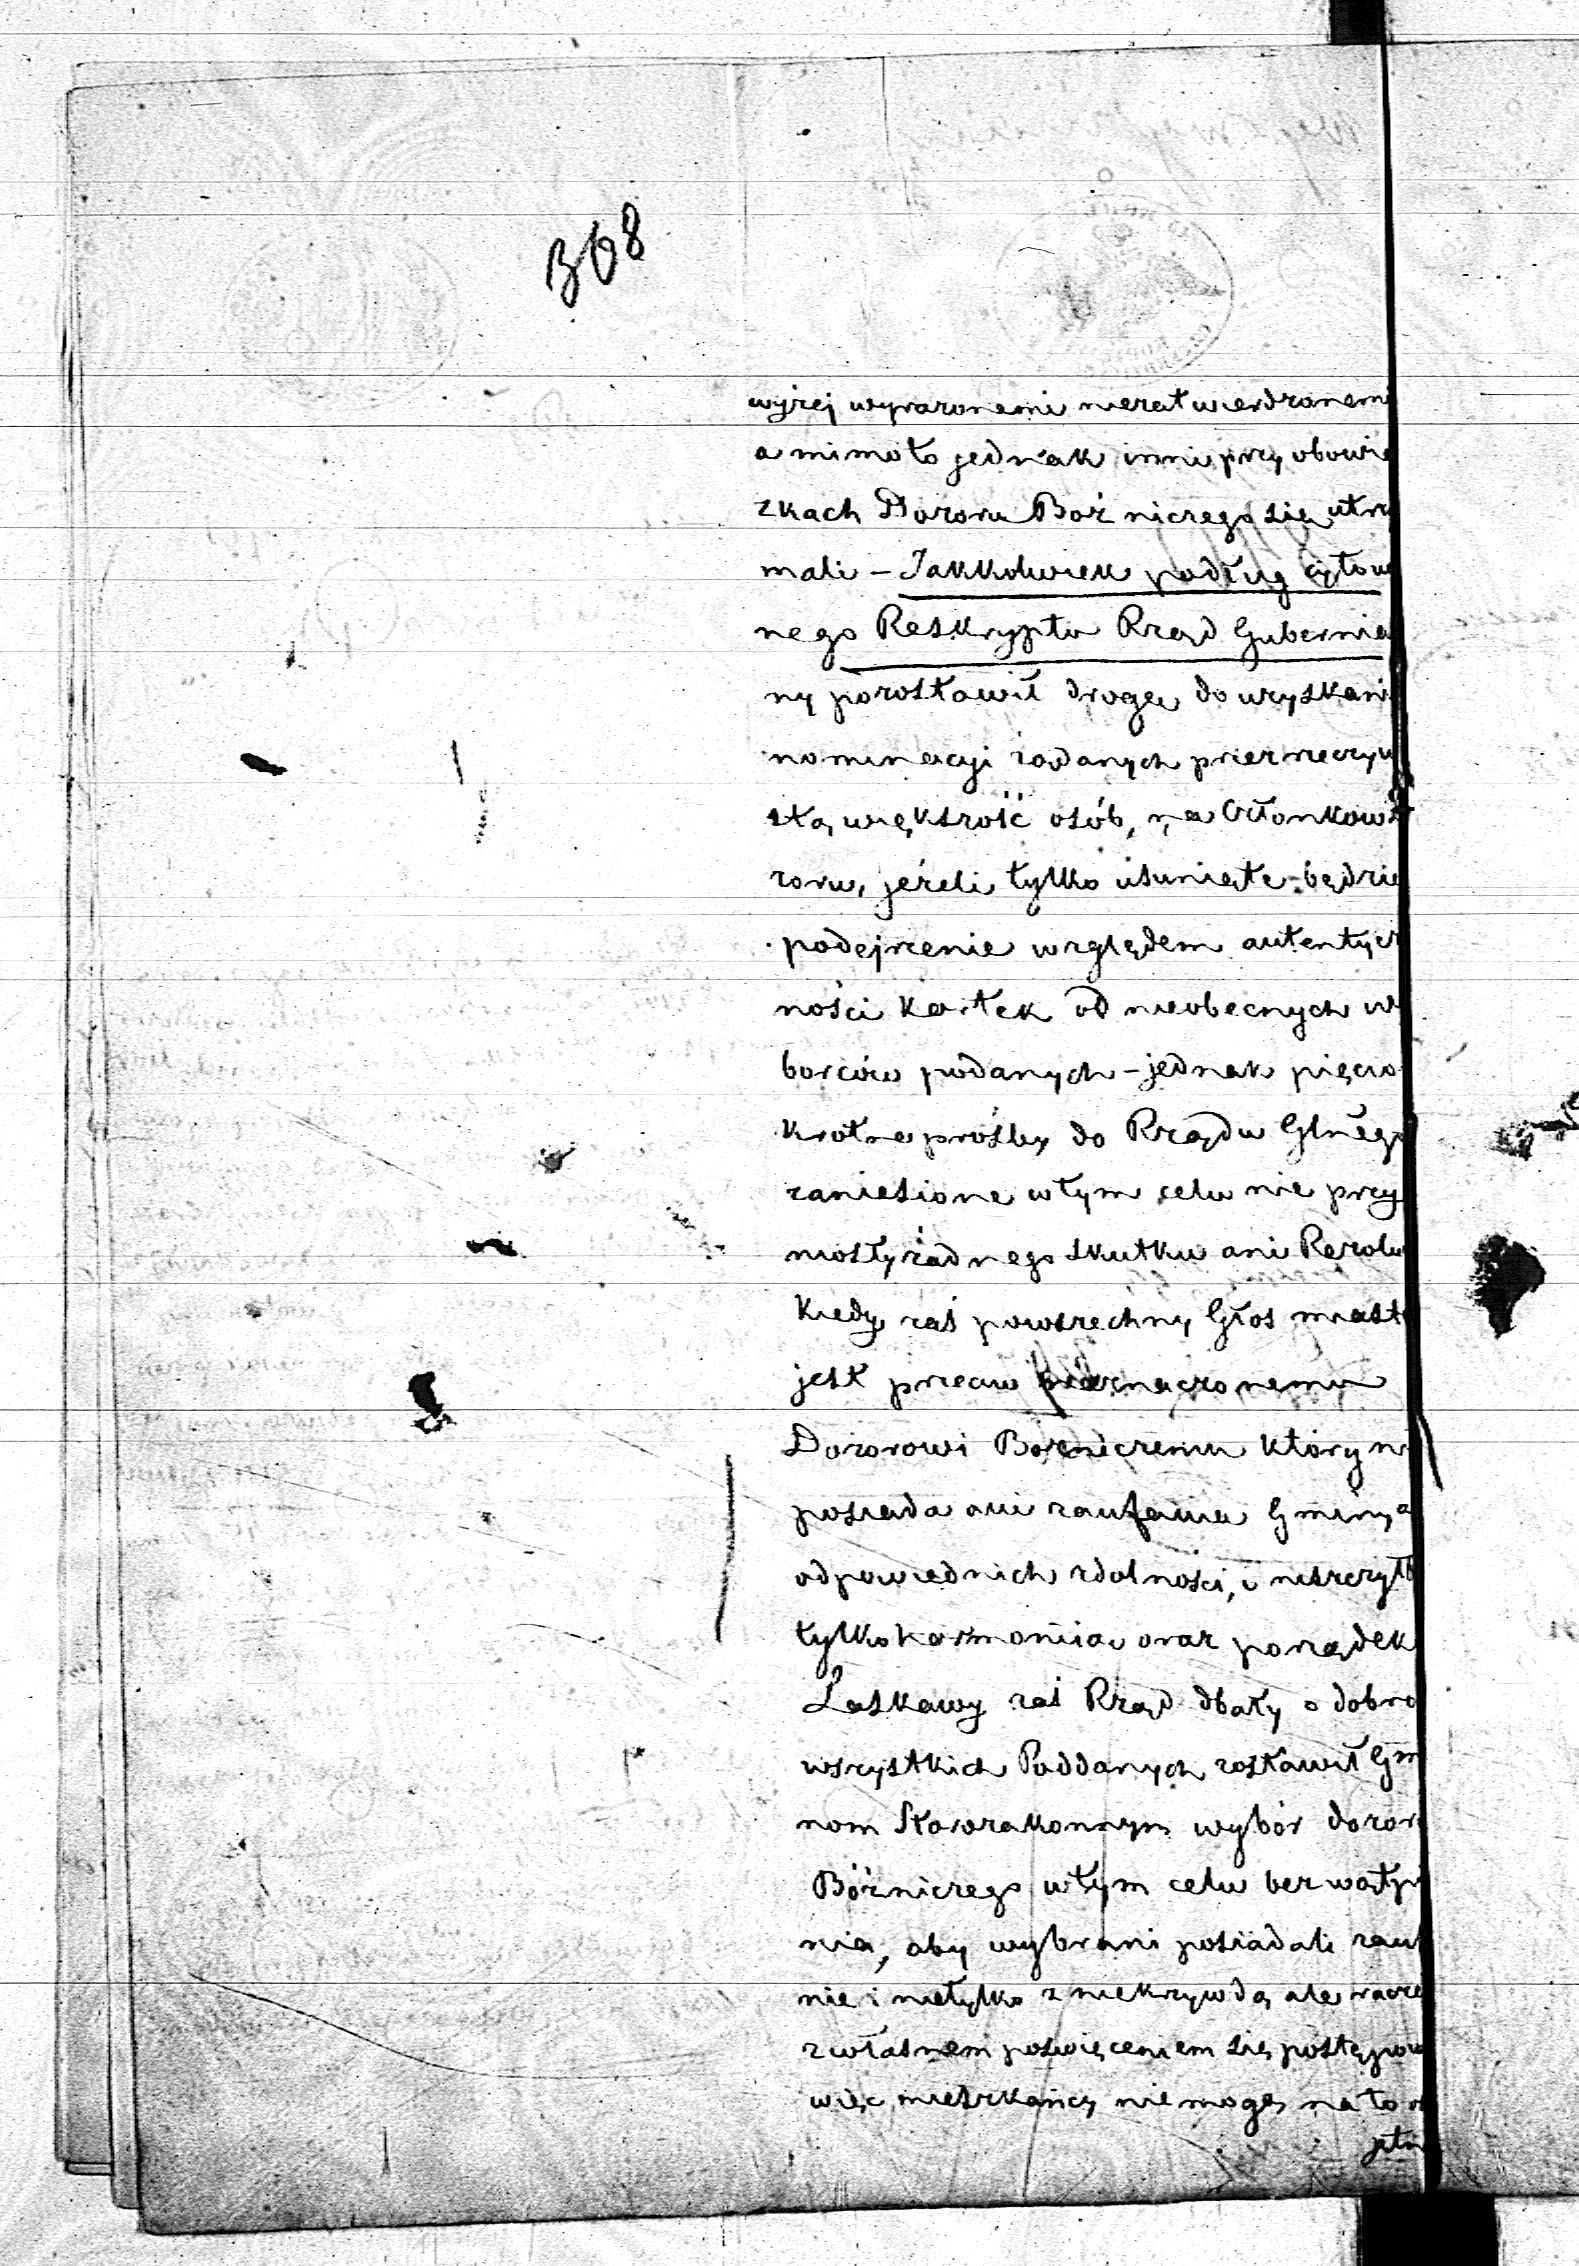 368
wyżej wyrazonemi niezatwierdzonemi
a mimoto jednak inni przy obowią
zkach Dozoru Bożniczego się utrzy
mali – Jakkolwiek podług cytowa
nego Reskryptu Rząd Gubernial
ny pozostawił drogę do uzyskani
nominacyi żądanych przez rzeczyw
stą większość osób, na Członków
zoru, jeżeli tylko usunięte będzie
podejrzenie względem autentycz
ności kartek od nieobecnych wy
borców podanych – jednak pięcio
krotne prośby do Rządu Glnego
zaniesione w tym celu nie przy
niosły żadnego skutku ani Rezolu
Kiedy zaś powszechny Głos miasta
jest przeciw
Dozorowi Bożniczemu który ni
posiada ani zaufania Gminy a
odpowiednich zdolności, i niszczył
tylko harmonią oraz porządek
Łaskawy zaś Rząd dbały o dobro
wszystkich Poddanych zostawił Gmi
nom Starozakonnym wybór dozoru
Bóżniczego w tym celu bez wątpi
nia, aby wybrani posiadali zauf
nie i nietylko z niekrzywdą ale racze
z własnem poświęceniem się postępow
więc mieszkańcy nie mogą na to o